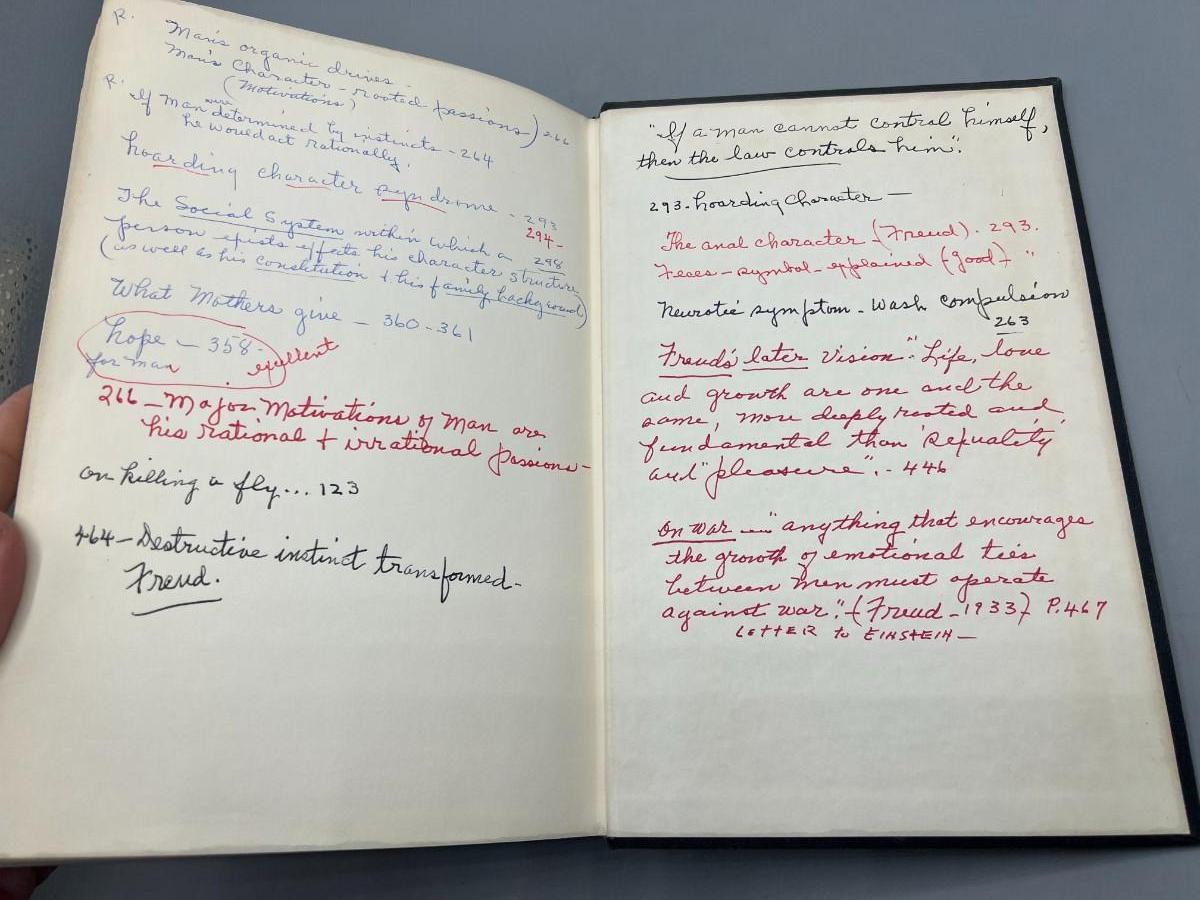 P.
Man's organic drives -
Man's Character - rooted passions) 266
(Motivations)
P.
If Man were determined by instincts - 264
he would act rationally.
hoarding character syndrome - 293
294-
The Social System within which a 298
person exists effects his character structure
(as well as his constitution + his family background)
What Mothers give - 360-361
hope - 358-
for man
. exellent
266 - Major Motivations of Man are
his rational + irrational passions -
on killing a fly... 123
464 - Destructive instinct transformed -
Freud.
"If a man cannot control himself,
then the law controls him".
293. hoarding Character -
The anal character - (Freud). 293.
Feces - symbol - explained (good) "
Neurotic symptom - Wash Compulsion
263
Freud's later Vision - "Life, love
and growth are one and the
same, more deeply rooted and
fundamental than 'sexuality'
and "pleasure". - 446
On War - "anything that encourages
the growth of emotional ties
between men must operate
against war". - (Freud - 1933) P.467
LETTER to EINSTEIN -